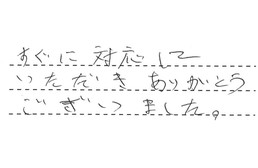 すぐに対応して
いただきありがとう
ございました。